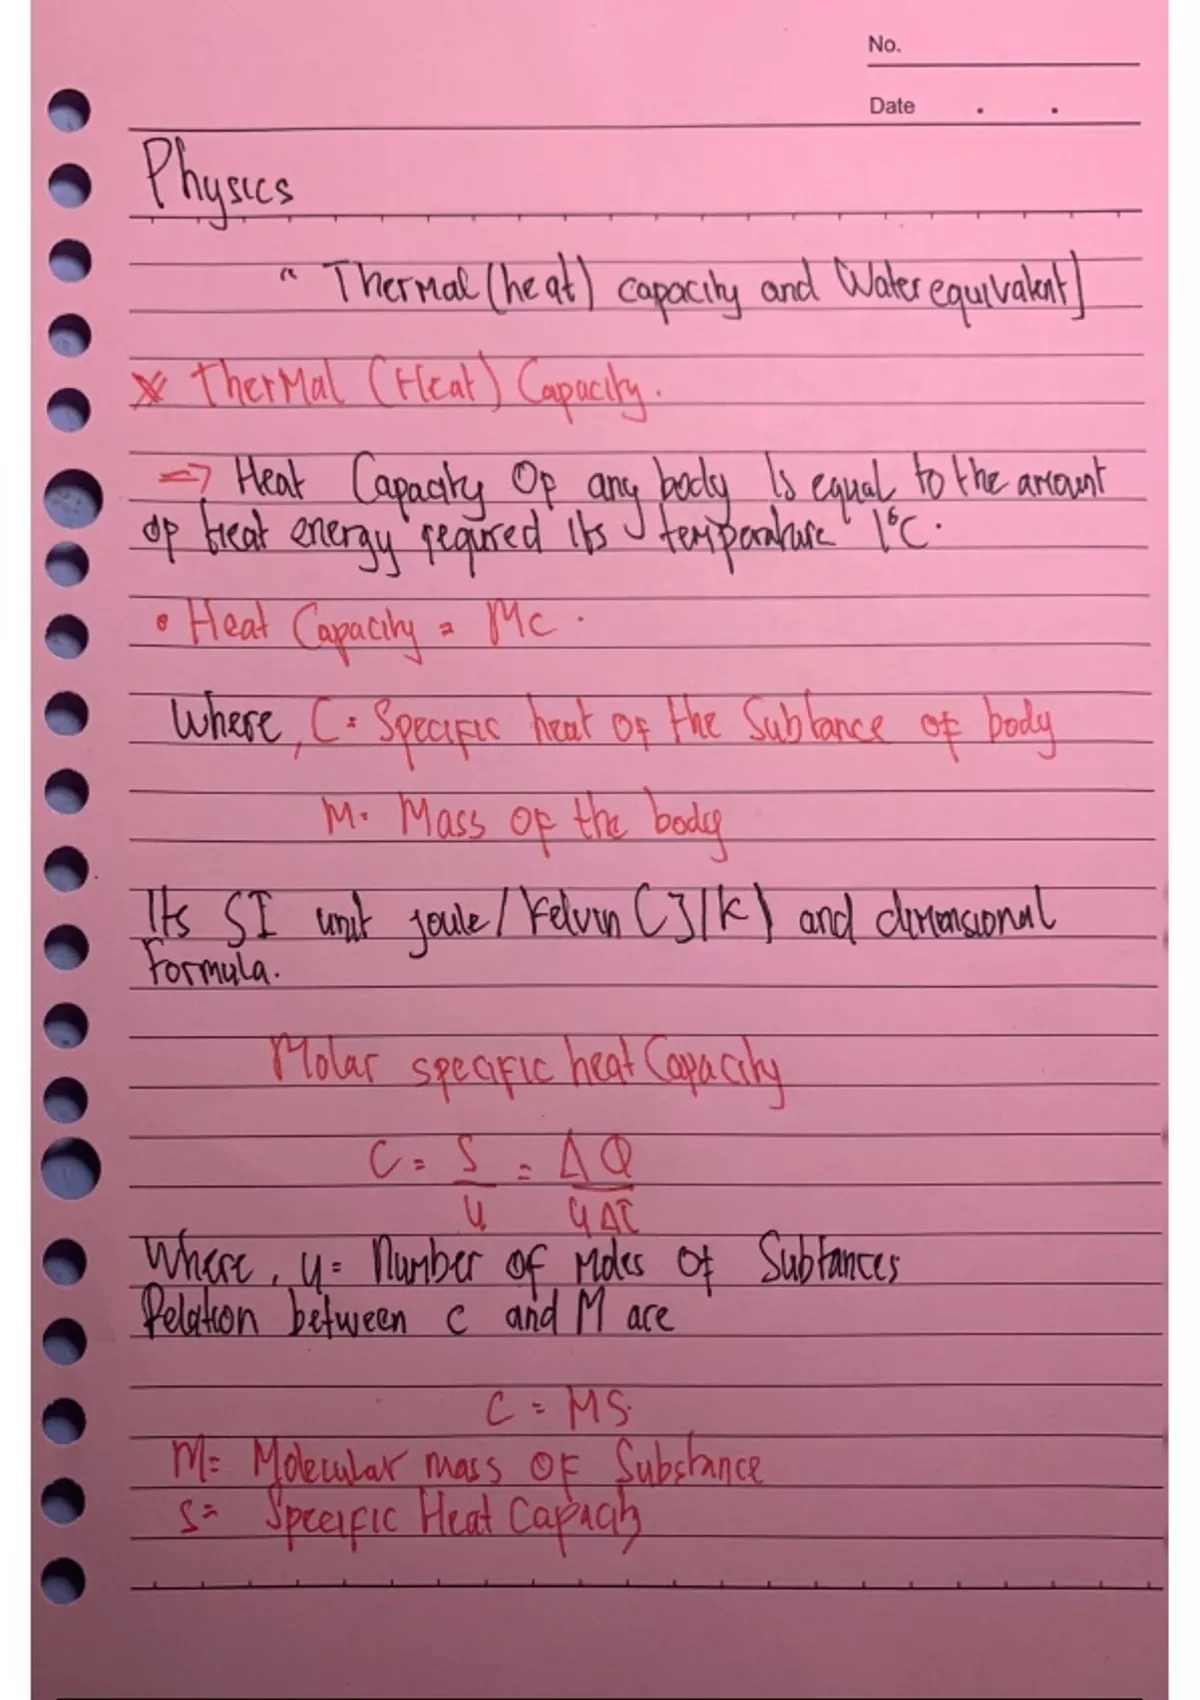 No.
Date . .
Physics
" Thermal (heat) capacity and Water equivalent]
Thermal (Heat) Capacity.
=> Heat Capacity Of any body Is equal to the amount
of heat energy required its temperature 1°C.
• Heat Capacity = Mc.
Where, C = Specific heat of the Subtance of body
M = Mass of the body
Its SI unit joule/Kelvin (J/K) and dimensional
Formula.
Molar specific heat Capacity
C = S/μ = ΔQ/μΔT
Where, μ = Number of moles Of Subtances
Relation between c and M are
C = MS.
M = Molecular mass of Substance
S = Specific Heat Capacity